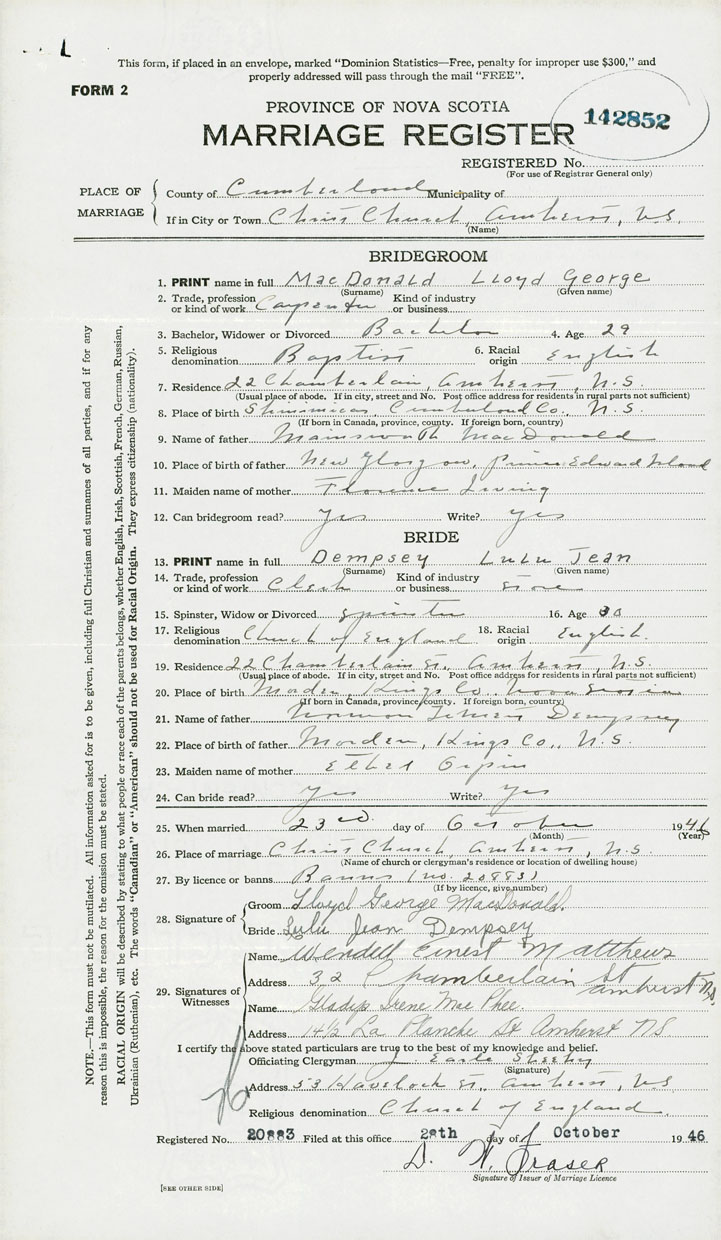 L
This form, if placed in an envelope, marked "Dominion Statistics—Free, penalty for improper use $300," and
properly addressed will pass through the mail "FREE".
FORM 2
PROVINCE OF NOVA SCOTIA
142852
MARRIAGE REGISTER
REGISTERED No.
(For use of Registrar General only)
PLACE OF MARRIAGE
County of Cumberland Municipality of
If in City or Town Christ Church, Amherst, N.S.
(Name)
BRIDEGROOM
1. PRINT name in full MacDonald Lloyd George
(Surname) (Given name)
2. Trade, profession or kind of work Carpenter Kind of industry or business
3. Bachelor, Widower or Divorced Bachelor 4. Age 29
5. Religious denomination Baptist 6. Racial origin English
7. Residence 22 Chamberlain, Amherst, N.S.
(Usual place of abode. If in city, street and No. Post office address for residents in rural parts not sufficient)
8. Place of birth Shinimicas, Cumberland Co., N.S.
(If born in Canada, province, county. If foreign born, country)
9. Name of father MacDonald
10. Place of birth of father New Glasgow, Prince Edward Island
11. Maiden name of mother Florence Irving
12. Can bridegroom read? Yes Write? Yes
BRIDE
13. PRINT name in full Dempsey Lulu Jean
(Surname) (Given name)
14. Trade, profession or kind of work Clerk Kind of industry or business Store
15. Spinster, Widow or Divorced Spinster 16. Age 30
17. Religious denomination Church of England 18. Racial origin English.
19. Residence 22 Chamberlain St., Amherst, N.S.
(Usual place of abode. If in city, street and No. Post office address for residents in rural parts not sufficient)
20. Place of birth Morden, Kings Co., Nova Scotia
(If born in Canada, province, county. If foreign born, country)
21. Name of father Norman Dempsey
22. Place of birth of father Morden, Kings Co., N.S.
23. Maiden name of mother Ethel Orpin
24. Can bride read? Yes Write? Yes
25. When married 23rd day of October 1946
(Month) (Year)
26. Place of marriage Christ Church, Amherst, N.S.
(Name of church or clergyman's residence or location of dwelling house)
27. By licence or banns Banns (no. 20883)
(If by licence, give number)
28. Signature of
Groom Lloyd George MacDonald.
Bride Lulu Jean Dempsey
29. Signatures of Witnesses
Name Wendell Ernest Matthews
Address 32 Chamberlain St Amherst N.S.
Name Gladys Irene MacPhee.
Address 14½ La Planche St Amherst NS
I certify the above stated particulars are true to the best of my knowledge and belief.
Officiating Clergyman J. Earle
(Signature)
Address 53 Havelock St., Amherst, N.S
Religious denomination Church of England.
Registered No. 20883 Filed at this office 28th day of October 1946
D. W. Fraser
Signature of Issuer of Marriage Licence
[SEE OTHER SIDE]
NOTE.—This form must not be mutilated. All information asked for is to be given, including full Christian and surnames of all parties, and if for any
reason this is impossible, the reason for the omission must be stated.
RACIAL ORIGIN will be described by stating to what people or race each of the parents belongs, whether English, Irish, Scottish, French, German, Russian,
Ukrainian (Ruthenian), etc. The words "Canadian" or "American" should not be used for Racial Origin. They express citizenship (nationality).